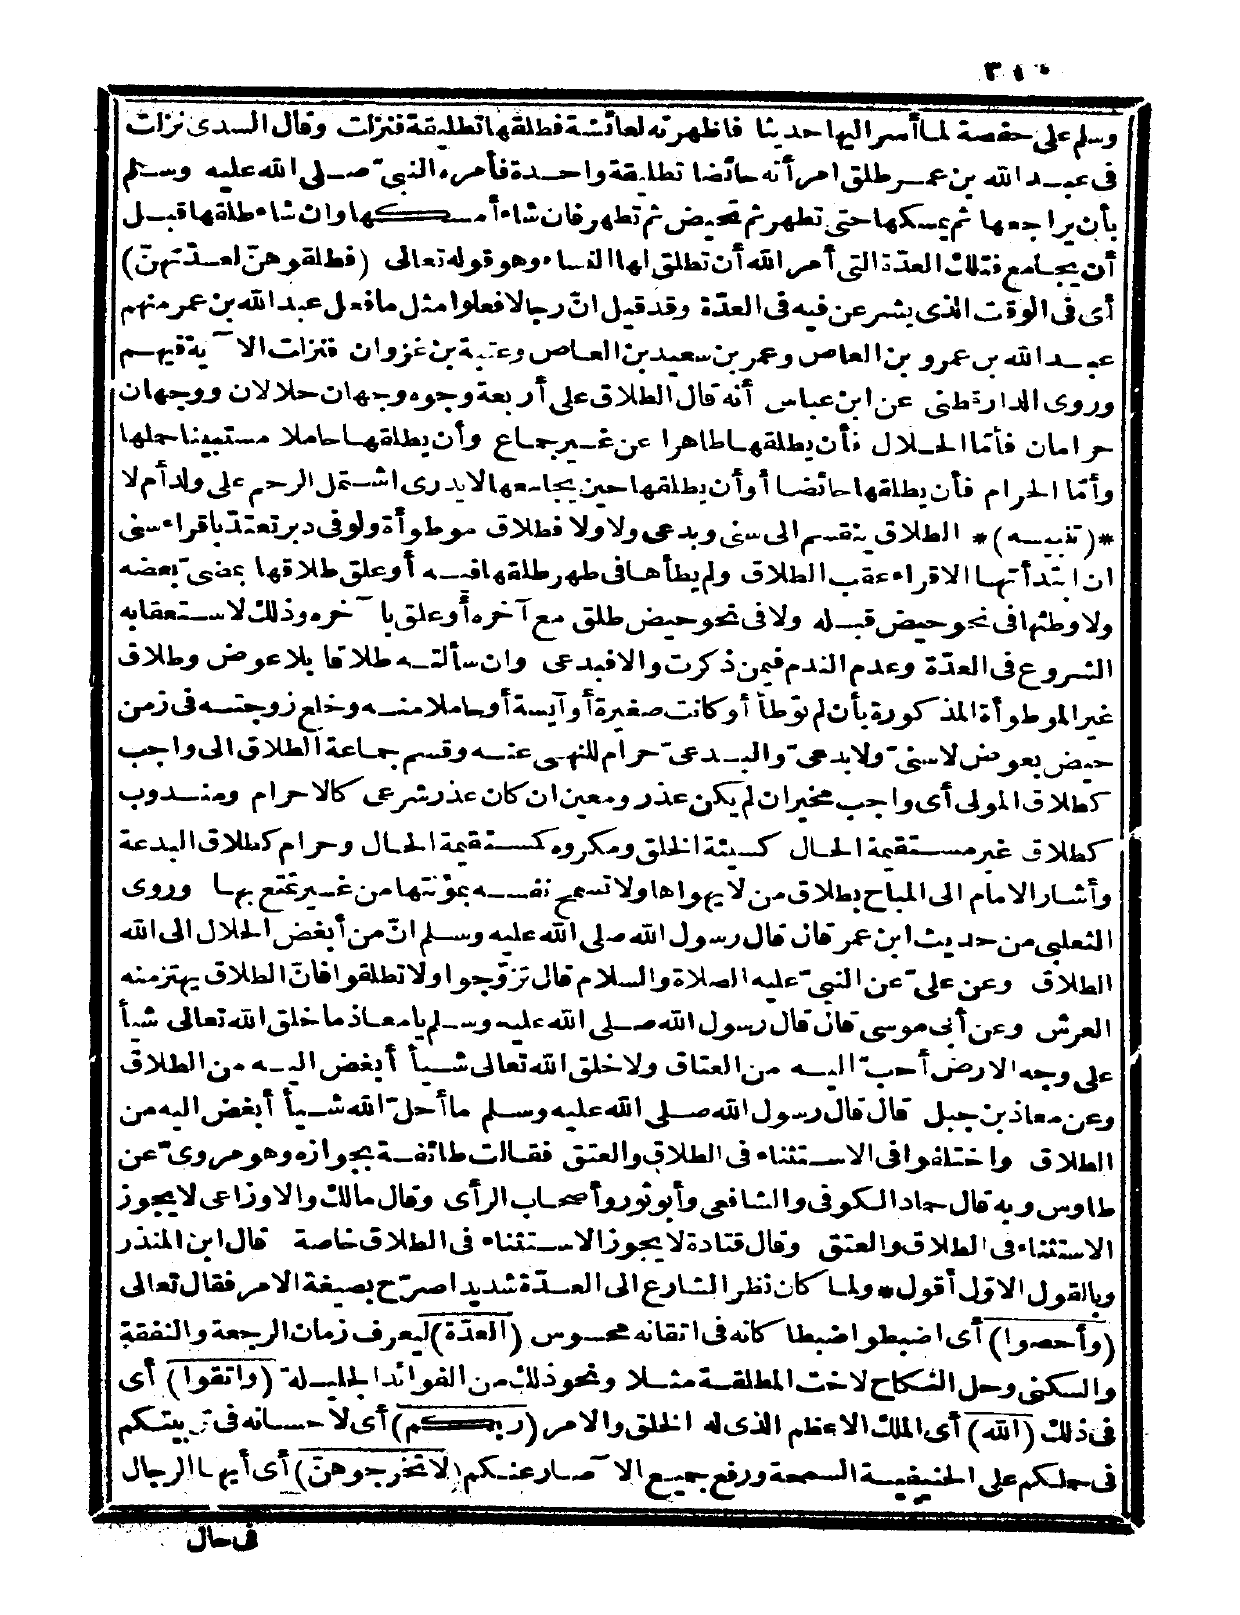 ٣١٠
وسلم على حفصة لما أسر اليها حديثا فأظهرته لعائشة فطلقها تطليقة فنزلت وقال السدى نزلت
فى عبد الله بن عمر طلق امرأته حائضا تطليقة واحدة فأمره النبىّ صلى الله عليه وسلم
بأن يراجعها ثم يمسكها حتى تطهر ثم تحيض ثم تطهر فان شاء أمسكها وان شاء طلقها قبل
أن يجامع فتلك العدّة التى أمر الله أن تطلق لها النساء وهو قوله تعالى (فطلقوهنّ لعدّتهنّ)
أى فى الوقت الذى يشرعن فيه فى العدّة وقد قيل انّ رجالا فعلوا مثل ما فعل عبد الله بن عمر منهم
عبد الله بن عمرو بن العاص وعمر بن سعيد بن العاص وعتبة بن غزوان فنزلت الآية فيهم
وروى الدارقطنى عن ابن عباس أنه قال الطلاق على أربعة وجوه وجهان حلالان ووجهان
حرامان فأمّا الحلال فأن يطلقها طاهرا عن غير جماع وأن يطلقها حاملا مستبينا حملها
وأمّا الحرام فأن يطلقها حائضا أو أن يطلقها حين يجامعها لا يدرى اشتمل الرحم على ولد أم لا
*(تنبيه)* الطلاق ينقسم الى سنى وبدعى ولا ولا فطلاق موطوأة ولو فى دبر تعتدّ باقراء سنى
ان ابتدأتها الاقراء عقب الطلاق ولم يطأها فى طهر طلقها فيه أو علق طلاقها بمضىّ بعضه
ولا وطئها فى نحو حيض قبله ولا فى نحو حيض طلق مع آخره أو علق بآخره وذلك لاستعقابه
الشروع فى العدّة وعدم الندم فيمن ذكرت والا فبدعى وان سألته طلاقا بلا عوض وطلاق
غير الموطوأة المذكورة بأن لم توطأ أو كانت صغيرة أو آيسة أو حاملا منه وخلع زوجته فى زمن
حيض بعوض لا سنىّ ولا بدعىّ والبدعىّ حرام للنهى عنه وقسم جماعة الطلاق الى واجب
كطلاق المولى أى واجب مخير ان لم يكن عذر ومعين ان كان عذر شرعى كالاحرام ومندوب
كطلاق غير مستقيمة الحال كسيئة الخلق ومكروه كمستقيمة الحال وحرام كطلاق البدعة
وأشار الامام الى المباح بطلاق من لا يهواها ولا تسمح نفسه بمؤنتها من غير تمتع بها وروى
الثعلبى من حديث ابن عمر قال قال رسول الله صلى الله عليه وسلم انّ من أبغض الحلال الى الله
الطلاق وعن علىّ عن النبىّ عليه الصلاة والسلام قال تزوّجوا ولا تطلقوا فانّ الطلاق يهتز منه
العرش وعن أبى موسى قال قال رسول الله صلى الله عليه وسلم يا معاذ ما خلق الله تعالى شيأ
على وجه الارض أحبّ اليه من العتاق ولا خلق الله تعالى شيأ أبغض اليه من الطلاق
وعن معاذ بن جبل قال قال رسول الله صلى الله عليه وسلم ما أحلّ الله شيأ أبغض اليه من
الطلاق واختلفوا فى الاستثناء فى الطلاق والعتق فقالت طائفة بجوازه وهو مروىّ عن
طاوس وبه قال حماد الكوفى والشافعى وأبو ثور وأصحاب الرأى وقال مالك والاوزاعى لا يجوز
الاستثناء فى الطلاق والعتق وقال قتادة لا يجوز الاستثناء فى الطلاق خاصة قال ابن المنذر
وبالقول الاوّل أقول* ولما كان نظر الشارع الى العدّة شديدا صرّح بصيغة الامر فقال تعالى
(وأحصوا) أى اضبطوا ضبطا كانه فى اتقانه محسوس (العدّة) ليعرف زمان الرجعة والنفقة
والسكنى وحل النكاح لاخت المطلقة مثلا ونحو ذلك من الفوائد الجليلة (واتقوا) أى
فى ذلك (الله) أى الملك الاعظم الذى له الخلق والامر (ربكم) أى لاحسانه فى تربيتكم
فى حملكم على الحنيفية السمحة ورفع جميع الآصار عنكم (لا تخرجوهنّ) أى أيها الرجال
فى حال